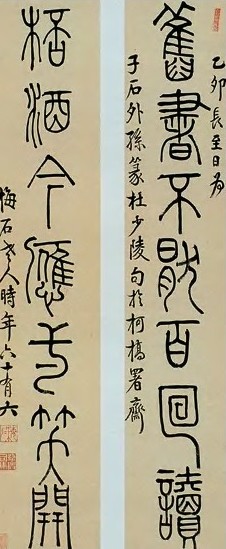 乙卯長至日為
舊書不猒百回讀
子石外孫篆杜少陵句於柯橋署齋
桮酒今應笑開
梅石老人時年六十有六